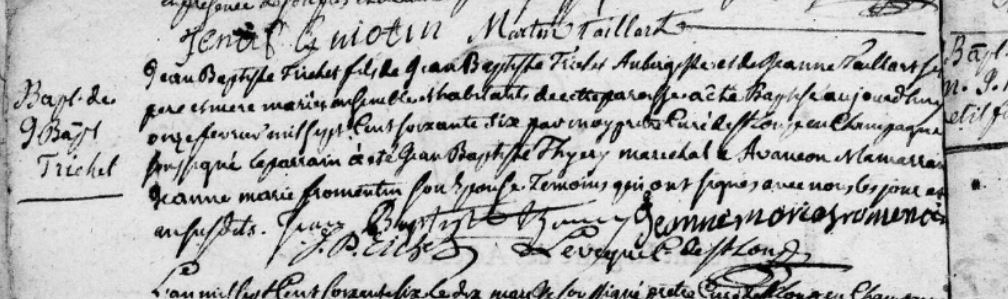 en presence
Martin Taillart
Bapt. de
J Bapt
Trichet
Jean Baptiste Trichet fils de Jean Baptiste Trichet Aubergiste et de Jeanne Taillart ses
pere et mere mariés ensemble et habitants de cette paroisse a été Baptisé aujourd'huy
onze fevrier mil sept Cent soixante Six par moy pretre Curé de st Loup en Champagne
soussigné le parrain a été Jean Baptiste Thyery marechal a Avancon La marraine
Jeanne marie fromentin son Epouse Temoins qui ont signés avec nous les jour et
an susdits. Jean Baptiste jeanne marie fromentin
Leveque C. de st Loup
L'an mil sept Cent soixante six le dix mars Je soussigné pretre Curé de st Loup en
Bapt.